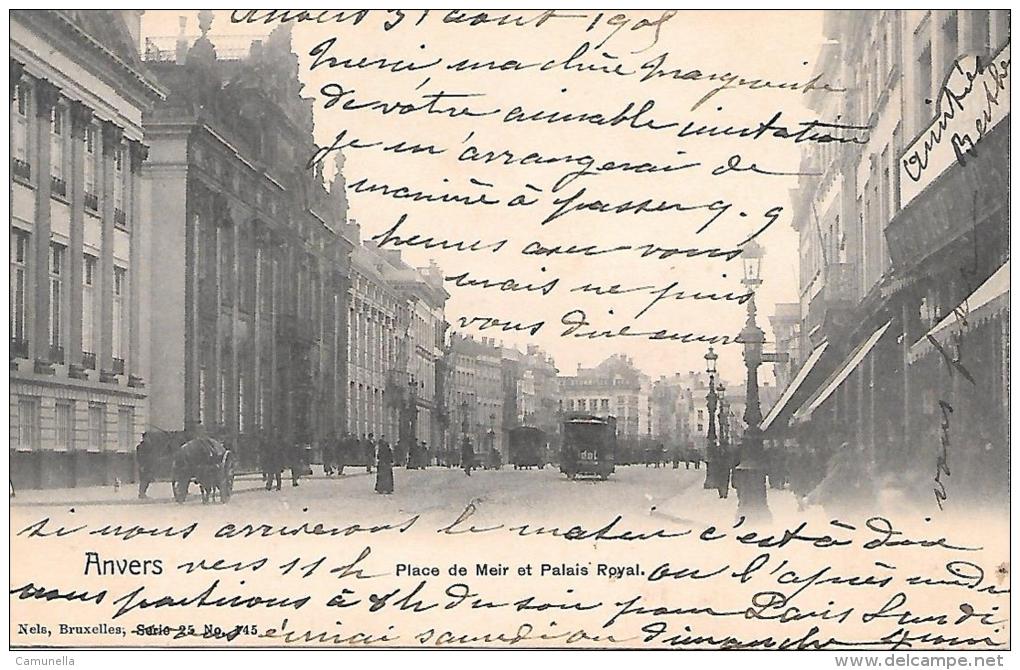 Anvers 31 août 1905
Merci ma chère Marguerite
de votre aimable invitation
je m'arrangerai de
manière à passer q. q
heures avec vous
mais ne puis
vous dire
si nous arriverons le matin c'est à dire
Anvers vers 11 h Place de Meir et Palais Royal. ou l'après midi
nous partirons à 8h du soir pour Paris Lundi
Nels, Bruxelles, Serie 25 No. 145 samedi ou dimanche
amitiés
Berthe
vous